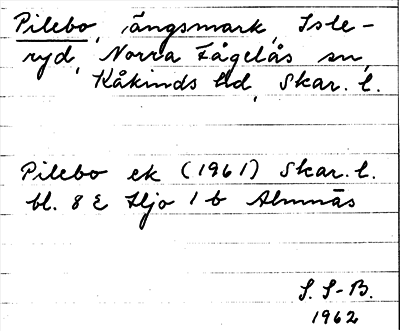 Pilebo, ängsmark, Isle-
ryd, Norra Fågelås sn,
Kåkinds hd, Skar. l.
Pilebo ek (1961) Skar. l.
bl. 8 E Hjo 1 b Almnäs
S. S-B.
1962